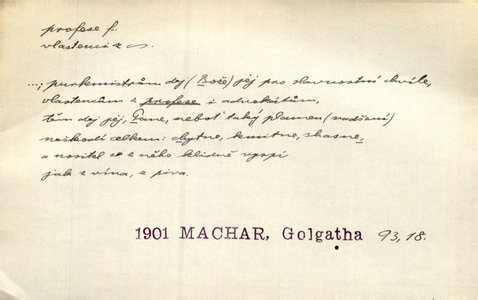 profese f.
vlastenci z
...; purkmistrům dej (Bože) jej pro slavnostní chvíle,
vlastencům z profese i advokátům,
těm dej jej, Pane, neboť taký plamen (nadšení)
neškodí celkem: chytne, kmitne, shasne,
a nositel se z něho klidně vyspí
jak z vína, z piva.
1901 MACHAR, Golgatha 93,18.